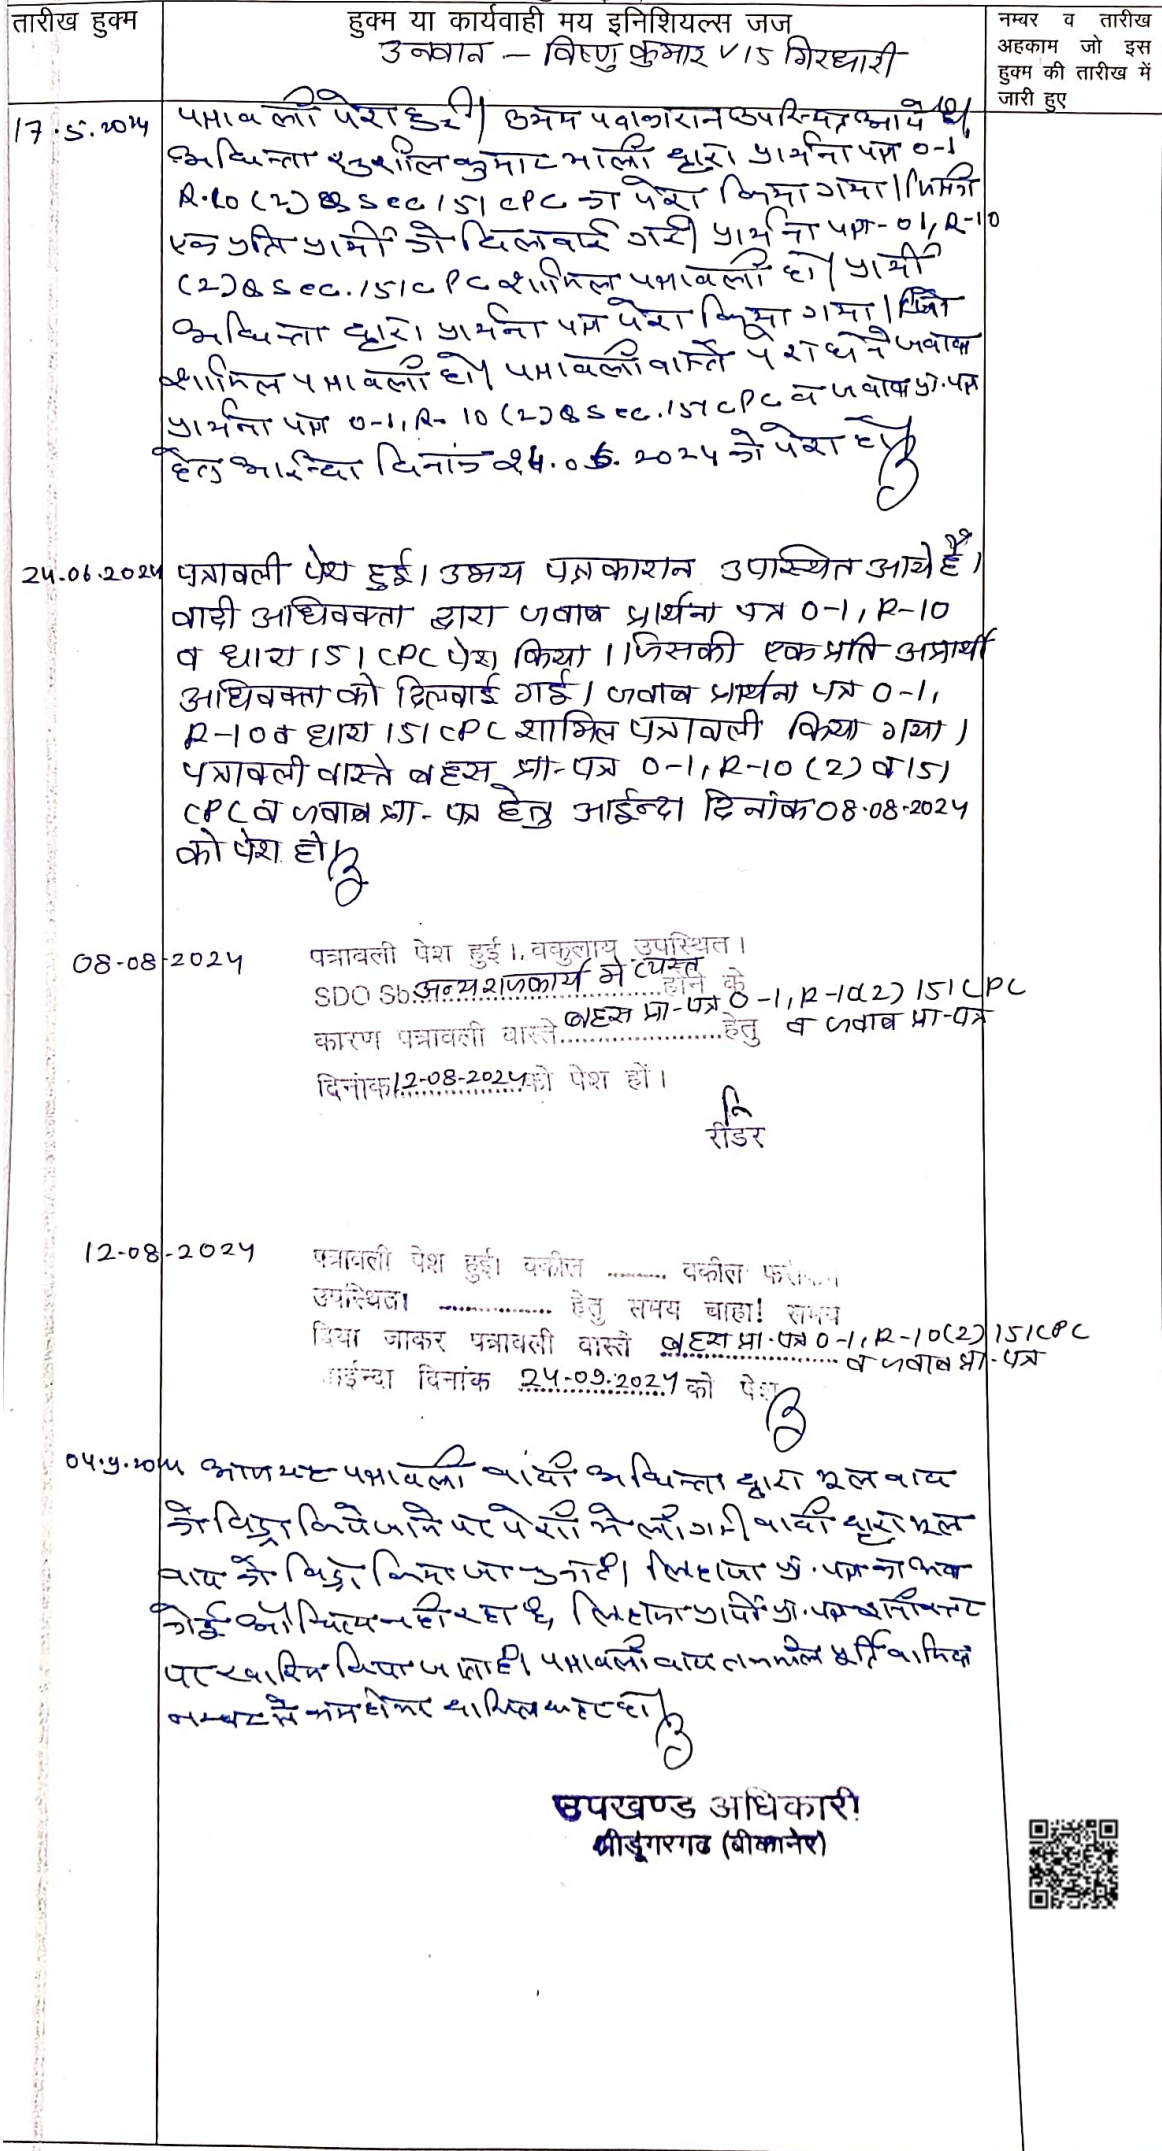 तारीख हुक्म
हुक्म या कार्यवाही मय इनिशियल्स जज
उनवान - विष्णु कुमार V/S गिरधारी
नम्बर व तारीख
अहकाम जो इस
हुक्म की तारीख में
जारी हुए
17.5.2024
पत्रावली पेश हुई। उभय पक्षकारान उपस्थित आये है।
अधिवक्ता सुशील कुमार माली द्वारा प्रार्थना पत्र 0-1
R.10 (2) & Sec 151 CPC का पेश किया गया। जिसकी
एक प्रति प्रार्थी को दिलवाई गई। प्रार्थना पत्र-01, R-10
(2) & Sec. 151 CPC शामिल पत्रावली हो। प्रार्थी
अधिवक्ता द्वारा प्रार्थना पत्र पेश किया गया।
शामिल पत्रावली हो। पत्रावली वास्ते पेश होने जवाब
प्रार्थना पत्र 0-1, R- 10 (2) & Sec. 151 CPC व जवाब प्रा. पत्र
हेतु आईन्दा दिनांक 24.06.2024 को पेश हो।
24.06.2024
पत्रावली पेश हुई। उभय पक्षकारान उपस्थित आये हैं।
वादी अधिवक्ता द्वारा जवाब प्रार्थना पत्र 0-1, R-10
व धारा 151 CPC पेश किया। जिसकी एक प्रति अप्रार्थी
अधिवक्ता को दिलवाई गई। जवाब प्रार्थना पत्र 0-1,
R-10 व धारा 151 CPC शामिल पत्रावली किया गया।
पत्रावली वास्ते बहस प्रा-पत्र 0-1, R-10 (2) व 151
CPC व जवाब प्रा- पत्र हेतु आईन्दा दिनांक 08.08.2024
को पेश हो।
08-08-2024
पत्रावली पेश हुई। वकुलाय उपस्थित।
SDO Sb. अन्य राजकार्य मे व्यस्त होने के
कारण पत्रावली वास्ते बहस प्रा-पत्र 0-1, R-10(2) 151 CPC व जवाब प्रा-पत्र हेतु
दिनांक 12-08-2024 को पेश हों।
रीडर
12-08-2024
पत्रावली पेश हुई। वकील .......... वकील
उपस्थित। .................. हेतु समय चाहा! समय
दिया जाकर पत्रावली वास्ते बहस प्रा.पत्र 0-1, R-10(2) 151 CPC
व जवाब प्रा.पत्र
आईन्दा दिनांक 24-09-2024 को पेश
04.9.2024
आज यह पत्रावली वादी अधिवक्ता द्वारा मूल वाद
को विड्रा किये जाने पर पेशी मे ली गई। वादी द्वारा मूल
वाद को विड्रो किया जा चुका है। लिहाजा प्रा. पत्र का अब
कोई औचित्य नही रहा है, लिहाजा प्रार्थी प्रा. पत्र
पर खारिज किया जाता है। पत्रावली बाद तकमील पूर्ति
नम्बर से कम होकर दाखिल दफ्तर हो।
उपखण्ड अधिकारी
श्रीडूंगरगढ (बीकानेर)